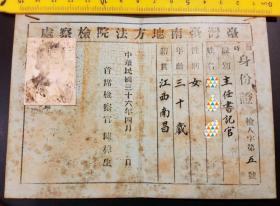 臺灣臺南地方法院檢察處
身份證
檢人字第五號
職別 主任書記官
姓名
性別 女
年齡 三十歲
籍貫 江西南昌
首席檢察官 陳
中華民國三十六年四月 日